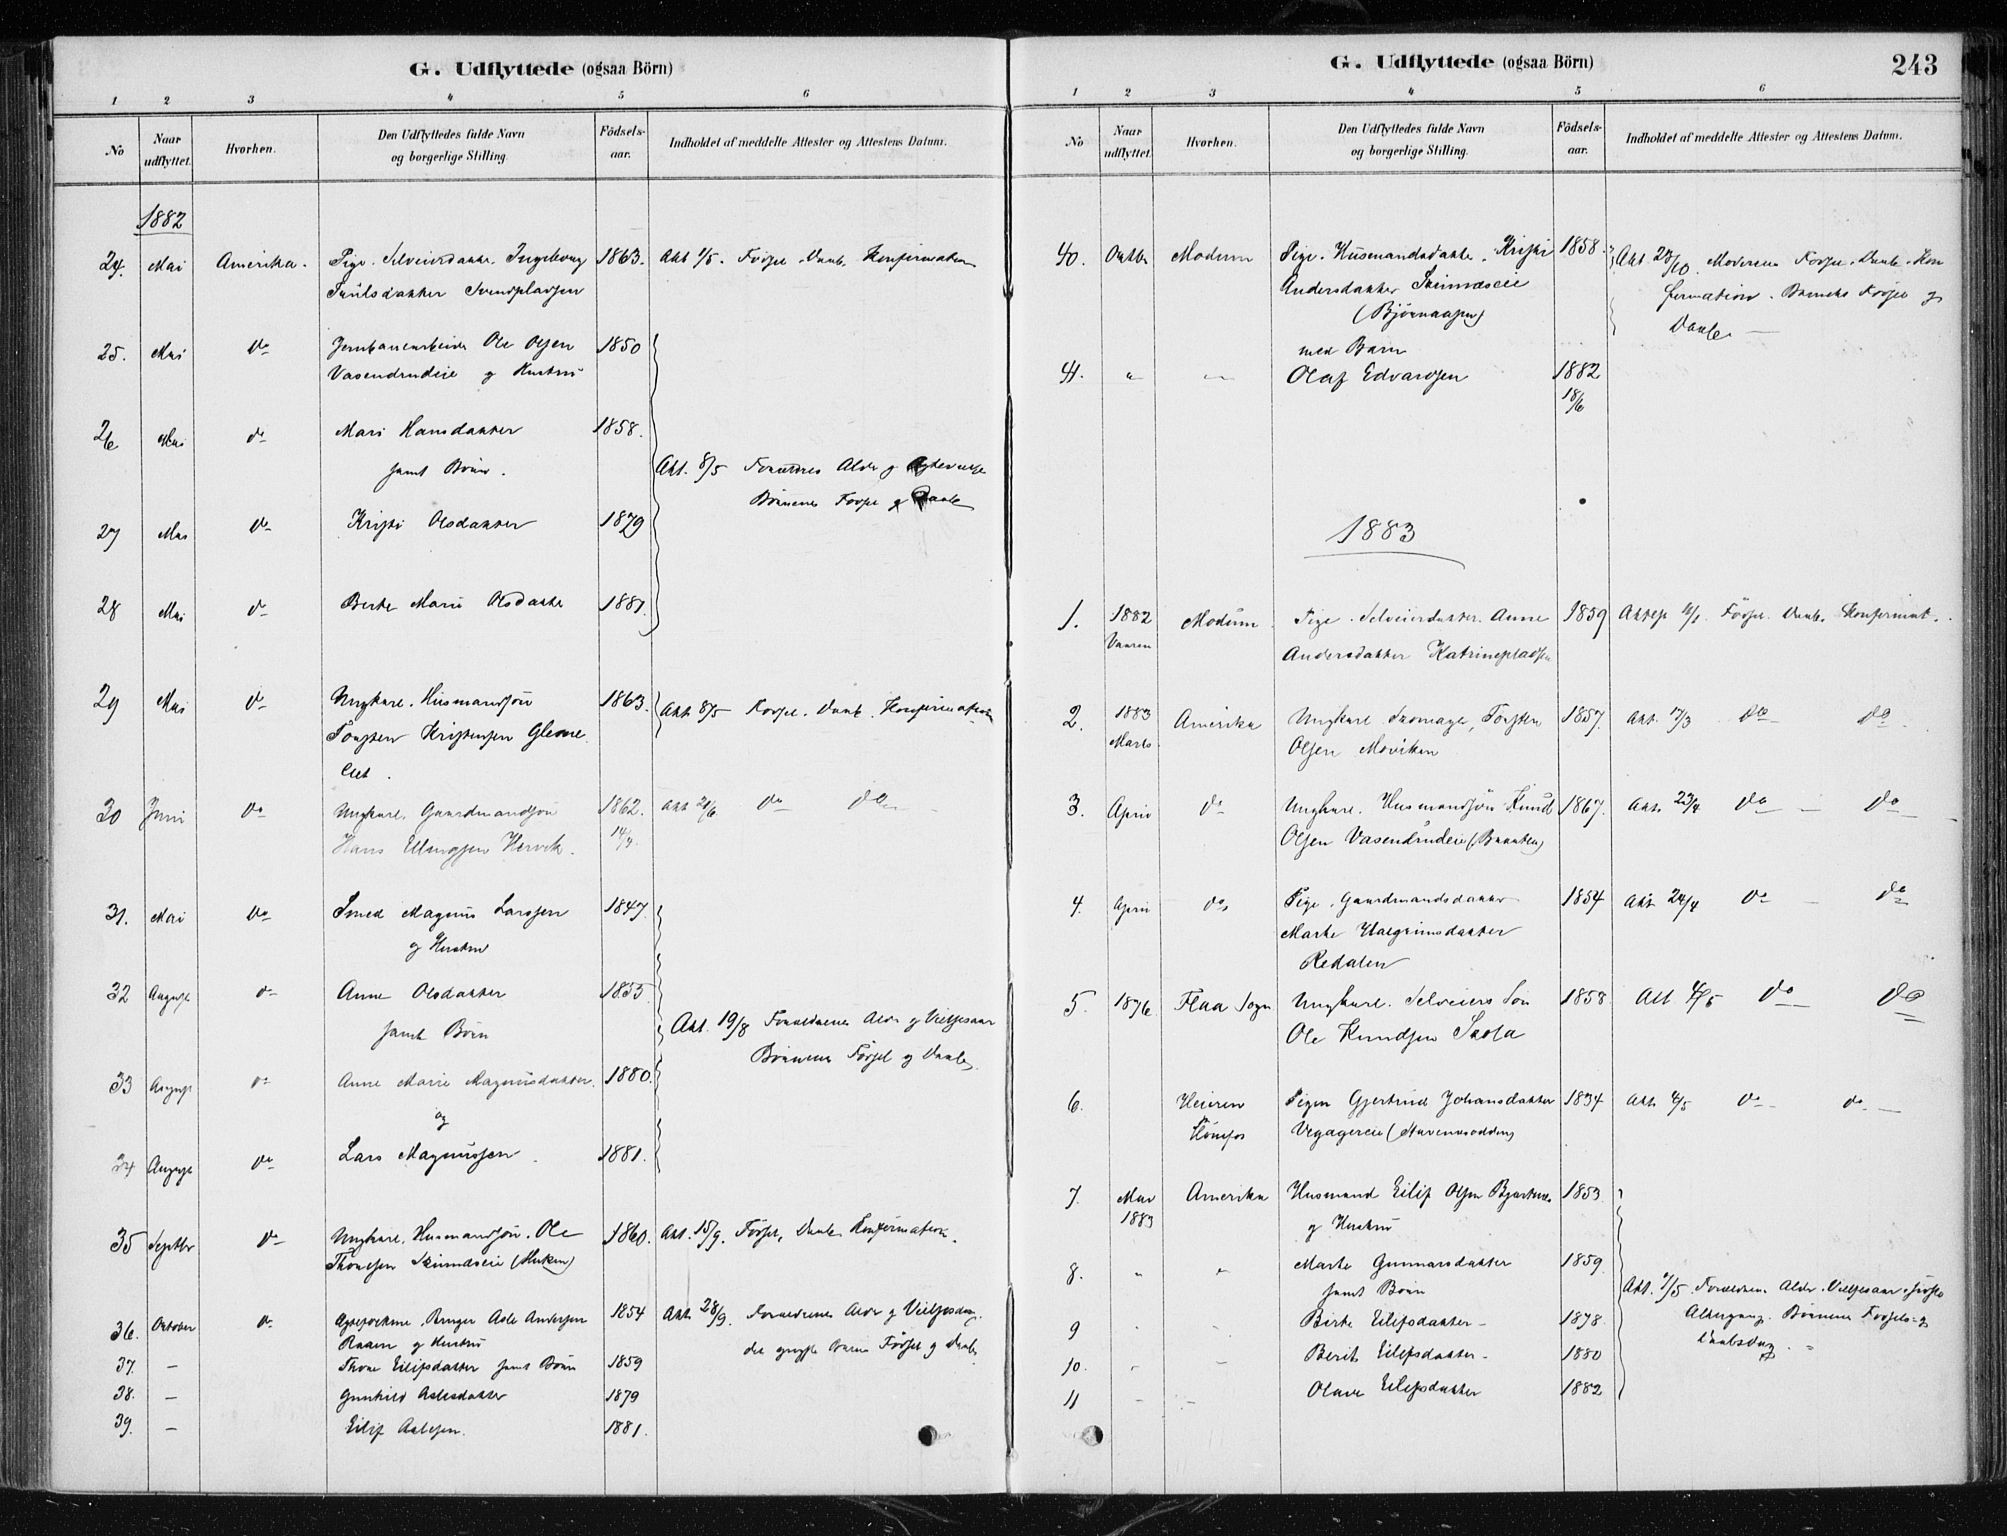 G. Udflyttede (ogsaa Börn)
1 2 3 4 5 6
No
Naar udflyttet.
Hvorhen.
Den Udflyttedes fulde Navn og borgerlige Stilling
Födsels-aar.
Indholdet af meddelte Attester og Attestens Datum.
1882
24. Mai Amerika. Pige. Selveierdatter. Ingeborg 1863. Att 1/5. Fødsel. Daab. Konfirmation
Paulsdatter
25. Mai do Jernbanearbeider Ole Olsen 1850
Vasendrudeie og Hustru
26 Mai do Mari Hansdatter 1858.
samt Børn.
Att. 8/5 Forældres Alder og
Børnenes Fødsel og Daab
27 Mai do Kristi Olsdatter 1879
28 Mai do Berte Marie Olsdatter 1881.
29 Mai do Ungkarl. Husmandssøn 1863. Att. 8/5 Fødsel. Daab. Konfirmation
Torsten Kristensen
30 Juni do Ungkarl. Gaardmandssøn 1862. Att 20/6 do do
Hans Ellingsen 14/4.
31. Mai do Smed Magnus Larssen 1847.
og Hustru
32 August do Anne Olsdatter 1855.
samt Børn
Att. 19/8 Forældrenes Alder og Vielsesaar
Børnenes Fødsel og Daab
33 August do Anne Marie Magnusdatter. 1880.
og
34 August do Lars Magnussen 1881.
35 Septbr do Ungkarl. Husmandssøn. Ole 1860. Att. 15/9. Fødsel, Daab Konfirmation.
Thomesen
36. October do Bruger Asle Andersen 1854 Att. 28/9. Forældrenes Alder og Vielsesdag.
Raaen og Hustru
Børns Fødsel og Daab
37. — Thone Eilifsdatter samt Børn 1859
38. — Gunhild Aslesdatter 1879
39. — Eilif Aslesen. 1881.
G. Udflyttede (ogsaa Börn)
243
1 2 3 4 5 6
No
Naar udflyttet
Hvorhen.
Den Udflyttedes fulde Navn og borgerlige Stilling.
Födsels-aar.
Indholdet af meddelte Attester og Attestens Datum.
40. Octbr Modum Pige. Husmandsdatter. Kristi 1858. Att. Moderens Fødsel. Daab. Kon
Andersdatter firmation. Barnets Fødsel og
Daab —
med Barn
41. " — Olaf Edvardsen 1882
18/6
1883
1. 1882 Modum Pige. Selveierdatter. Anne 1859 Fødsel. Daab. Konfirmat.
Vaaren Andersdatter Katrinepladsen
2. 1883 Amerika Ungkarl 1857. Att. 17/3 do do
Marts Olsen Moviken
3. April do Ungkarl. Husmandssøn Knud 1867. Att. 23/4 do — do
Olsen Vasendrudeie (Braaten)
4. April do Pige. Gaardmandsdatter 1854 Att 24/4 do — do
Marte Halgrimsdatter
Redalen
5. 1876 Flaa Sogn Ungkarl. Selveiers Søn 1858. Att 4/5 do do
Ole Knudsen
6. Heieren Pigen Gjertrud Johansdatter 1834 Att. 4/5 do do
Hønefos
7. Mai Amerika Husmand Eilif Olsen 1853
1883 og Hustru
8. " " Marte Gunnarsdatter 1859.
samt Børn
Forældrenes Alder. Vielsesaar
Altergang. Børnenes Fødsels- og
Daabsdag
9 Birte Eilifsdatter — 1878.
10. Berit Eilifsdatter — 1880
11 Olava Eilifsdatter 1882